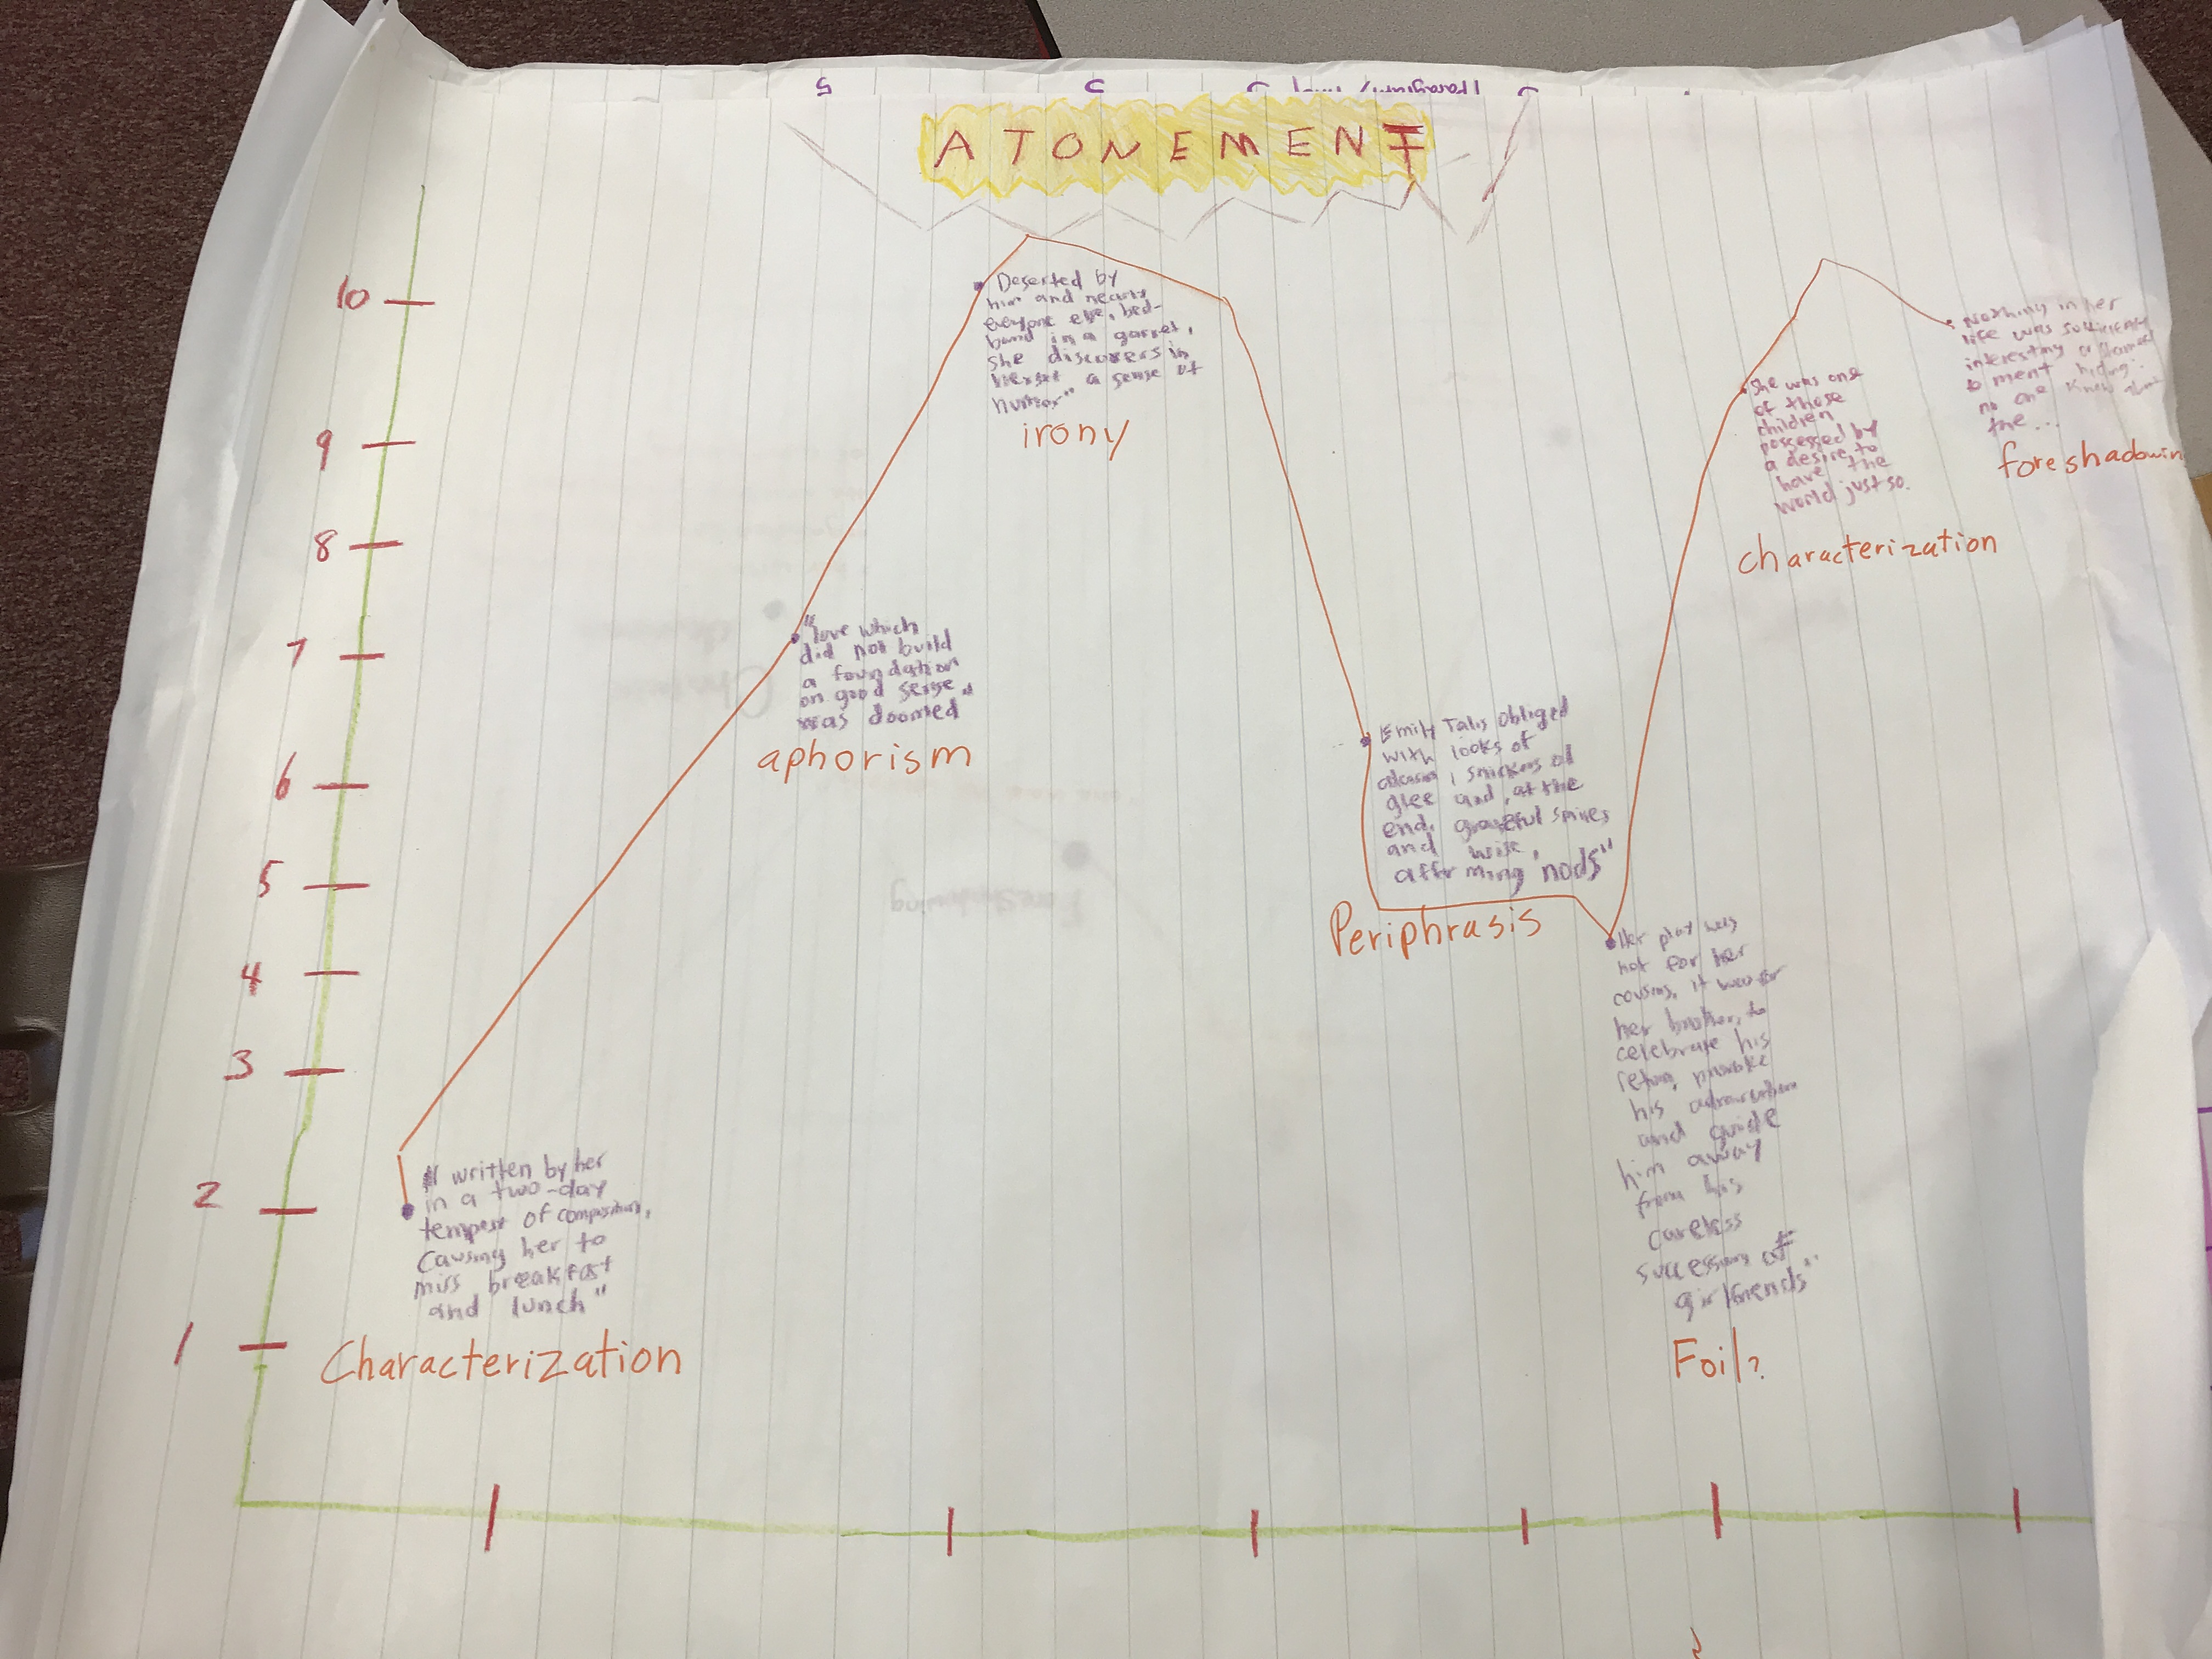 ATONEMENT
10
9
8
7
6
5
4
3
2
1
" written by her
in a two-day
tempest of composition,
causing her to
miss breakfast
and lunch"
Characterization
"love which
did not build
a foundation
on good sense
was doomed"
aphorism
Deserted by
him and nearly
everyone else, bed-
bound in a garret,
she discovers in
herself a sense of
humor"
irony
Emily Talis obliged
with looks of
glee and, at the
end, grateful smiles
and wise,
affirming nods"
Periphrasis
Her play was
not for her
cousins, it was for
her brother, to
celebrate his
return, provoke
his admiration
and guide
him away
from his
careless
succession of
girlfriends"
Foil?
She was one
of those
children
possessed by
a desire to
have the
world just so.
characterization
Nothing in her
life was sufficiently
interesting or
hiding:
no one knew about
the...
foreshadowin
Foreshadowing
5